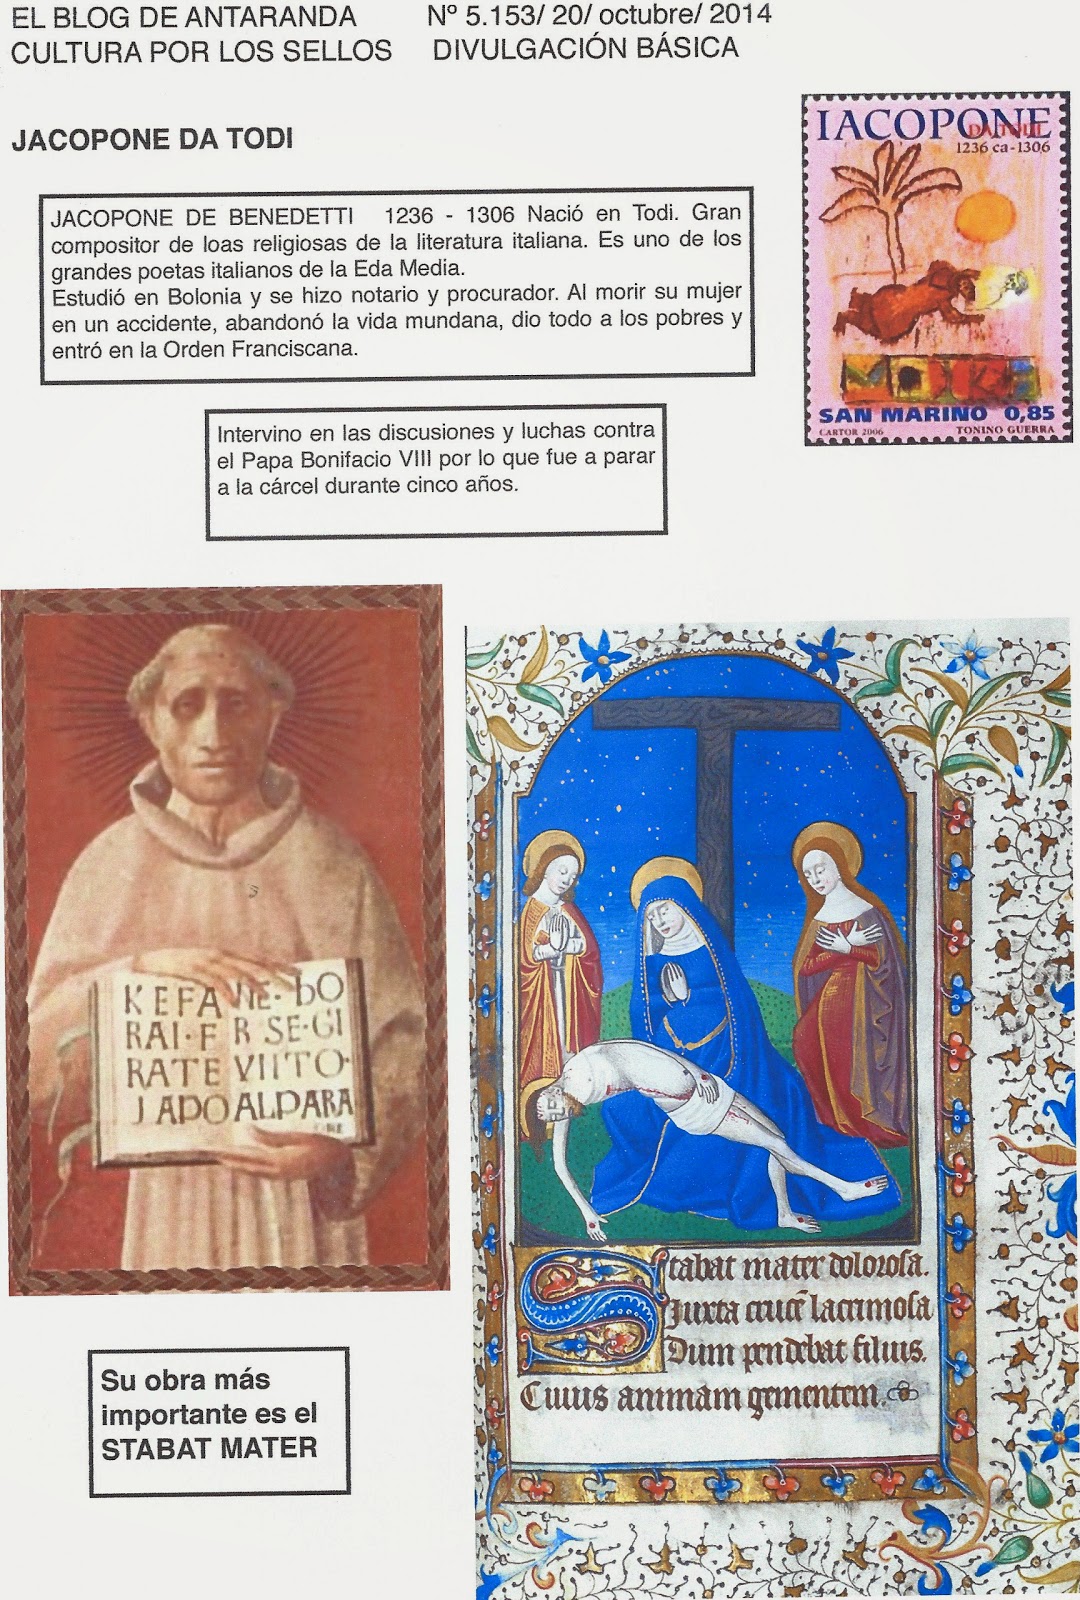 EL BLOG DE ANTARANDA Nº 5.153/ 20/ octubre/ 2014
CULTURA POR LOS SELLOS DIVULGACIÓN BÁSICA
JACOPONE DA TODI
IACOPONE
DA TODI
1236 ca-1306
SAN MARINO 0,85
CARTOR 2006 TONINO GUERRA
JACOPONE DE BENEDETTI 1236 - 1306 Nació en Todi. Gran
compositor de loas religiosas de la literatura italiana. Es uno de los
grandes poetas italianos de la Eda Media.
Estudió en Bolonia y se hizo notario y procurador. Al morir su mujer
en un accidente, abandonó la vida mundana, dio todo a los pobres y
entró en la Orden Franciscana.
Intervino en las discusiones y luchas contra
el Papa Bonifacio VIII por lo que fue a parar
a la cárcel durante cinco años.
KE FA NE·BO
RAI·F R SE·GI
RATE VIITO·
JAPO ALPARA
Su obra más
importante es el
STABAT MATER
Stabat mater dolorosa.
Juxta crucē lacrimosa
Dum pendebat filius.
Cuius animam gementem.